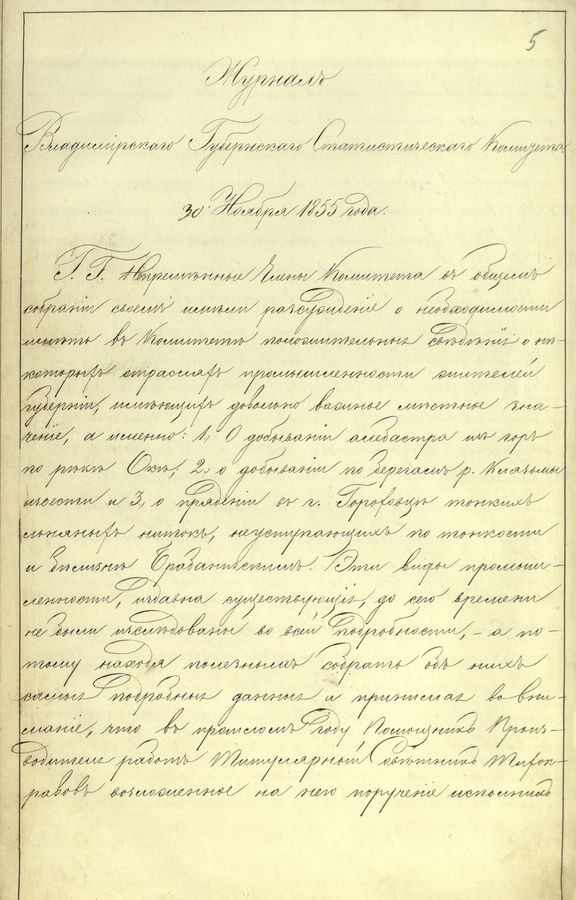 5
Журналъ
Владимiрскаго Губернскаго Статистическаго Комитета.
30. Ноября 1855 года.
Г. Г. Непремѣнные Члены Комитета въ общемъ
собранiи своемъ имѣли разсужденiе о необходимости
имѣть въ Комитетѣ положительныя свѣдѣнiя о нѣ-
которыхъ отрасляхъ промышленности жителей
губернiи, имѣющихъ довольно важное мѣстное зна-
ченiе, а именно: 1, О добыванiи алебастра изъ горъ
по рѣкѣ Окѣ; 2, о добыванiи по берегамъ р. Клязьмы
извести и 3, о пряденiи въ г. Гороховцѣ тонкихъ
льняныхъ нитокъ, неуступающихъ по тонкости
и бѣлизнѣ Брабантскимъ. Эти виды промыш-
ленности, издавна существующiя, до сего времени
не были изслѣдованы во всей подробности, – а по-
тому находя полезнымъ собрать объ нихъ
самыя подробныя данныя и принимая во вни-
манiе, что въ прошломъ году Помощникъ Произ-
водителя работъ Титулярный Совѣтникъ Тихон-
равовъ возложенное на него порученiе исполнилъ